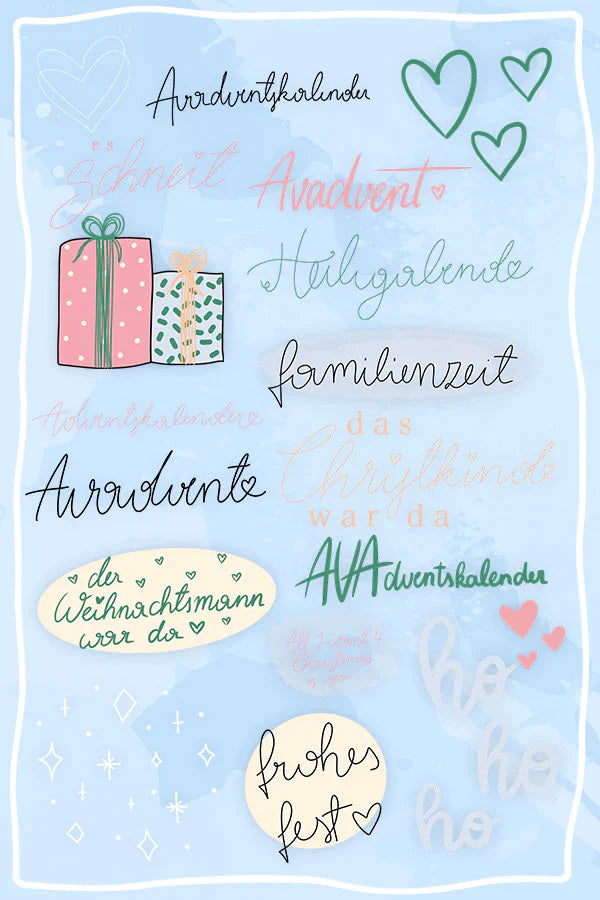 Avadventskalender
es
schneit
Avadvent
Heiligabend
familienzeit
Adventskalender
Avadvent
das
Christkind
war da
der
Weihnachtsmann
war da
AVAdventskalender
All I want 4
Christmas
is you
ho
ho
ho
frohes
fest